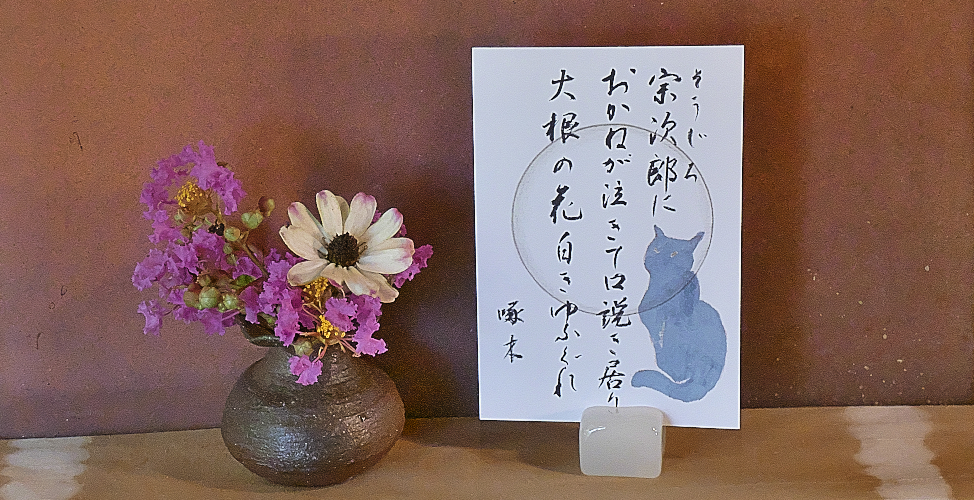 そうじろ
宗次郎に
おかねが泣きて口説き居り
大根の花白きゆふぐれ
啄木